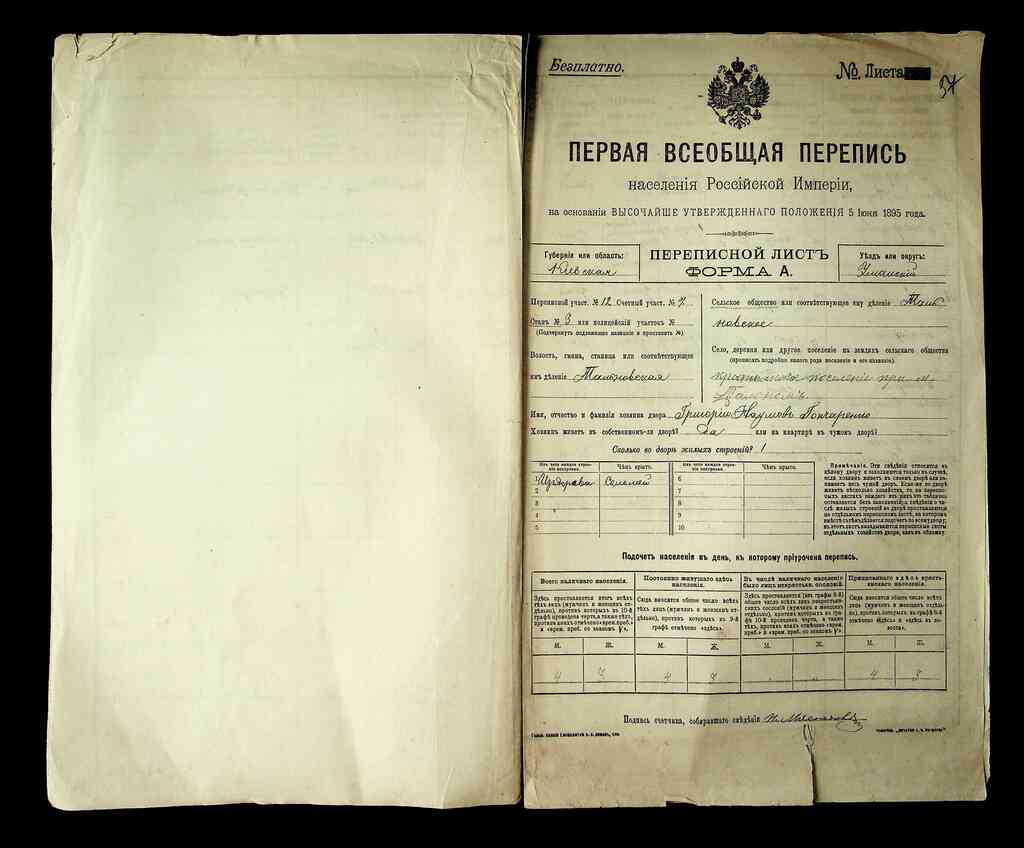 Безплатно.
№ Листа 37
ПЕРВАЯ ВСЕОБЩАЯ ПЕРЕПИСЬ
населенія Россійской Имперіи,
на основаніи ВЫСОЧАЙШЕ УТВЕРЖДЕННАГО ПОЛОЖЕНІЯ 5 Іюня 1895 года.
Губернія или область:
Кіевская
ПЕРЕПИСНОЙ ЛИСТЪ
ФОРМА А.
Уѣздъ или округъ:
Уманскій
Переписной участ. № 12 Счетный участ. № 7
Станъ № 3 или полицейскій участокъ №
(Подчеркнуть подлежащее названіе и проставить №).
Волость, гмина, станица или соотвѣтствующее
имъ дѣленіе Тальновская
Сельское общество или соотвѣтствующее ему дѣленіе Таль
новское
Село, деревня или другое поселеніе на земляхъ сельскаго общества
(прописать подробно какого рода поселеніе и его названіе).
поселеніе при м.
Имя, отчество и фамилія хозяина двора Григорій Наумовъ Гончаренко
Хозяинъ живетъ въ собственномъ-ли дворѣ? да или на квартирѣ въ чужомъ дворѣ?
Сколько во дворѣ жилыхъ строеній? 1
Изъ чего каждое строе-
ніе построено.
Чѣмъ крыто.
Изъ чего каждое строе-
ніе построено.
Чѣмъ крыто.
Изъ дерева Соломой
2
3
4
5
6
7
8
9
10
Примѣчаніе. Эти свѣдѣнія относятся къ
цѣлому двору и заполняются только въ случаѣ,
если хозяинъ живетъ въ своемъ дворѣ или за-
нимаетъ весь чужой дворъ. Если-же во дворѣ
живетъ нѣсколько хозяйствъ, то на перепис-
ныхъ листахъ каждаго изъ нихъ эта табличка
оставляется безъ заполненія, а свѣдѣнія о чи-
слѣ жилыхъ строеній во дворѣ проставляются
на отдѣльномъ переписномъ листѣ, на которомъ
Подсчетъ населенія въ день, къ которому пріурочена перепись.
Всего наличнаго населенія.
Здѣсь проставляется итогъ всѣхъ
тѣхъ лицъ (мужчинъ и женщинъ от-
дѣльно), противъ которыхъ въ 10-й
графѣ проведена черта, а также тѣхъ,
противъ коихъ отмѣчено «врем. преб.»
и «врем. преб. со знакомъ V».
М. Ж.
4 3
Постоянно живущаго здѣсь
населенія.
Сюда вносится общее число всѣхъ
тѣхъ лицъ (мужчинъ и женщинъ от-
дѣльно), противъ которыхъ въ 9-й
графѣ отмѣчено «здѣсь».
М. Ж.
4 3
Въ числѣ наличнаго населенія
было лицъ некрестьян. сословій.
Здѣсь проставляется (изъ графы 8-й)
общее число всѣхъ лицъ некрестьян-
скихъ сословій (мужчинъ и женщинъ
отдѣльно), противъ которыхъ въ
графѣ 10-й проведена черта, а также
тѣхъ, противъ коихъ отмѣчено «врем.
преб.» и «врем. преб. со знакомъ V».
М. Ж.
Приписаннаго здѣсь кресть-
янскаго населенія.
Сюда вносится общее число всѣхъ
лицъ (мужчинъ и женщинъ отдѣль-
но), противъ которыхъ въ графѣ 8-й
отмѣчено «здѣсь» и «здѣсь въ во-
лости».
М. Ж.
4 3
Подпись счетчика, собиравшаго свѣдѣнія